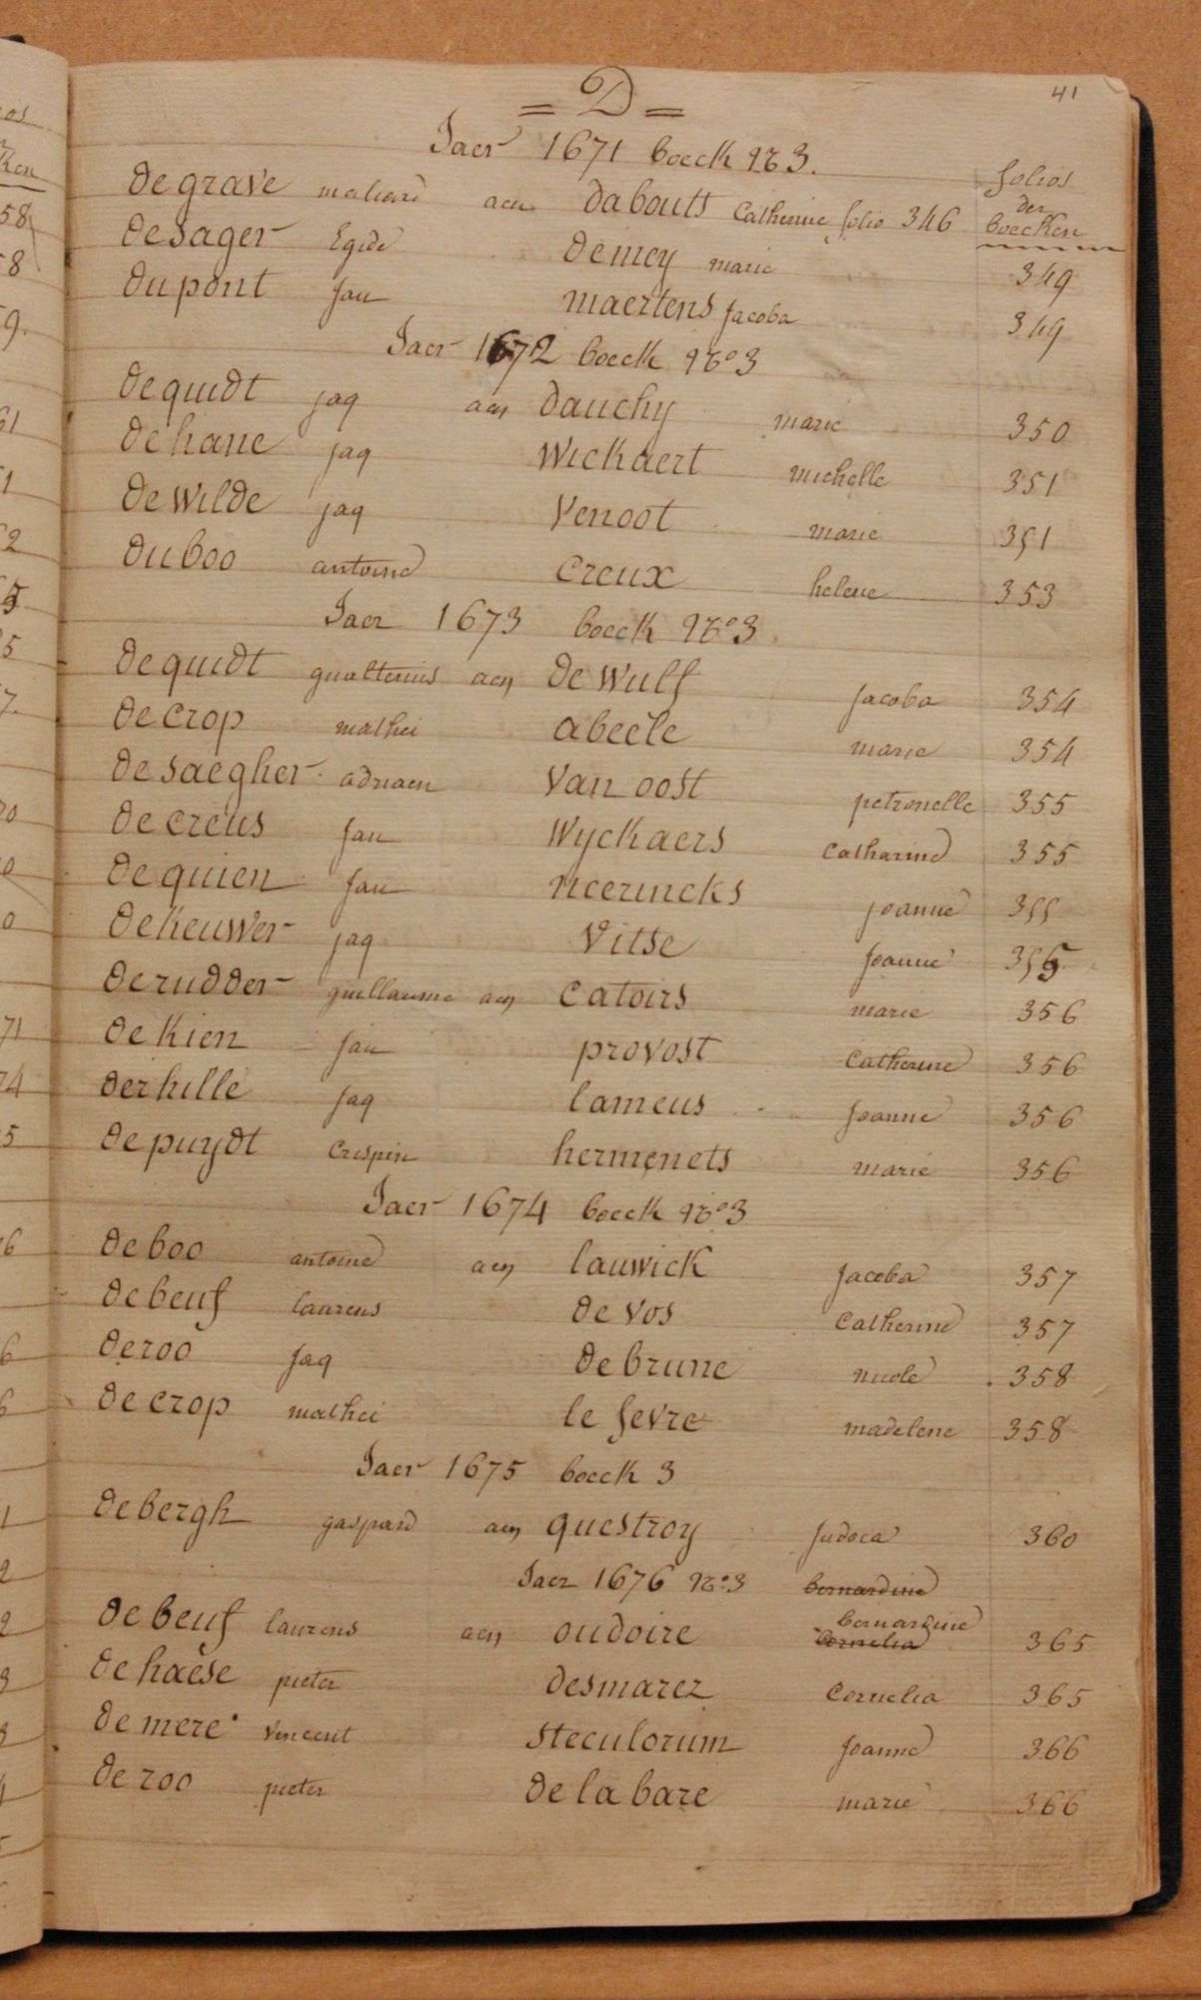 41
= D =
Jaer 1671 boeck No 3.
folios
der
boecken
de grave maliard aen dabouts Catherine folio 346
de sager Egide demey marie 349
du pont Jan maertens Jacoba 349
Jaer 1672 boeck No 3
de quidt jaq aen dauchy marie 350
de hane jaq wickaert michelle 351
de wilde jaq venoot marie 351
du boo antoine creux helene 353
Jaer 1673 boeck No 3
de quidt gualterius aen de wulf Jacoba 354
de crop mathei abeele marie 354
de saegher adriaen van oost petronelle 355
de creus Jan wyckaers Catharine 355
de quien Jan neerincks joanne 355
de keuwer jaq vitse Joanne 355
de rudder guillaume aen catoirs marie 356
de kien Jan provost Catherine 356
der hille Jaq lameus Joanne 356
de puydt Crespin hermenets marie 356
Jaer 1674 boeck No 3
de boo antoine aen lauwick Jacoba 357
de beuf laurens de vos Catherine 357
de roo Jaq de brune nicole 358
de crop mathei le fevre madelene 358
Jaer 1675 boeck 3
de bergh gaspard aen questroy Judoca 360
Jaer 1676 No 3 bernardine
bernardine
de beuf laurens aen oudoire Cornelia 365
de haese pieter desmarez Cornelia 365
de mere vincent steculorum Joanne 366
de roo pieter de la bare marie 366